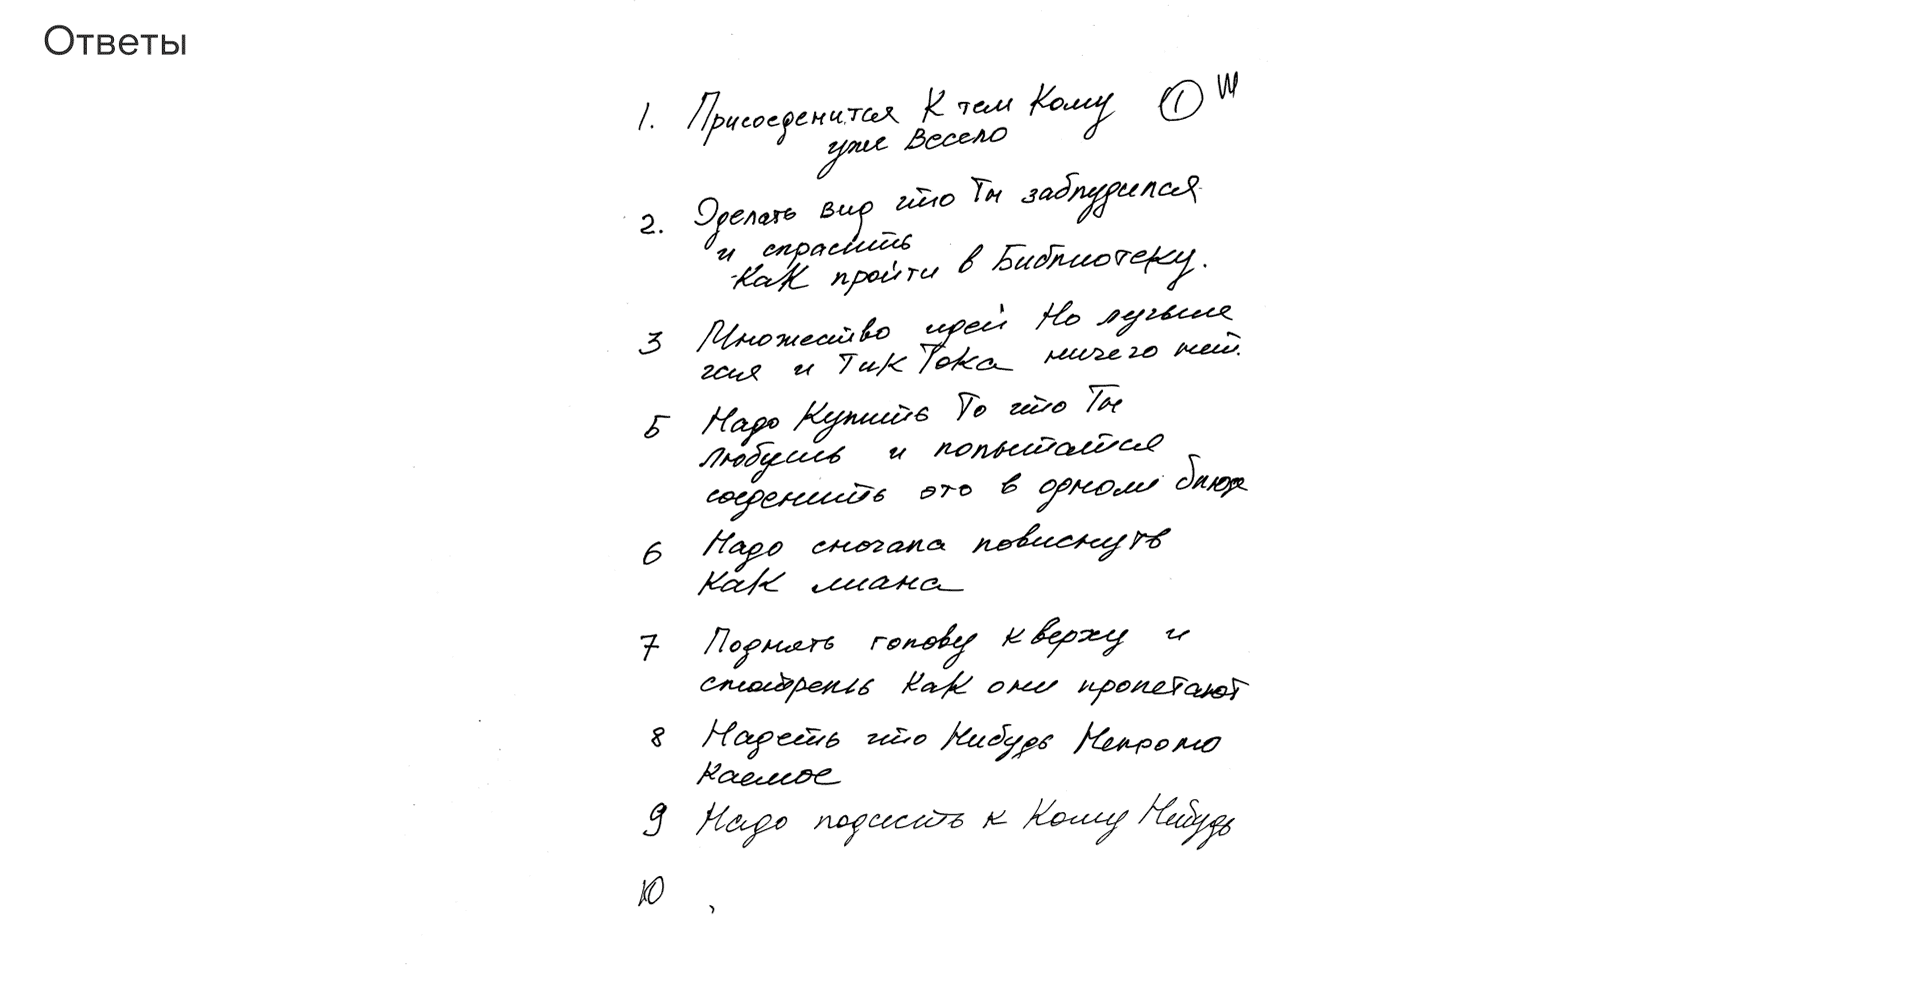 Ответы
1. Присоеденится К тем Кому ① Ш
уже Весело
2. Зделать вид что Ты заблудился
и спрасить
Как пройти в Библиотеку.
3 Множество идей Но лучьше
чая и ТикТока ничего нет.
5 Надо Купить То что Ты
любишь и попытатся
соеденить это в одном блюде
6 Надо сночала повиснуть
Как лиана
7 Поднять голову кверху и
смотреть Как они пролетают
8 Надеть что Нибудь Непромо
каемое
9 Надо подсесть к Кому Нибудь
10